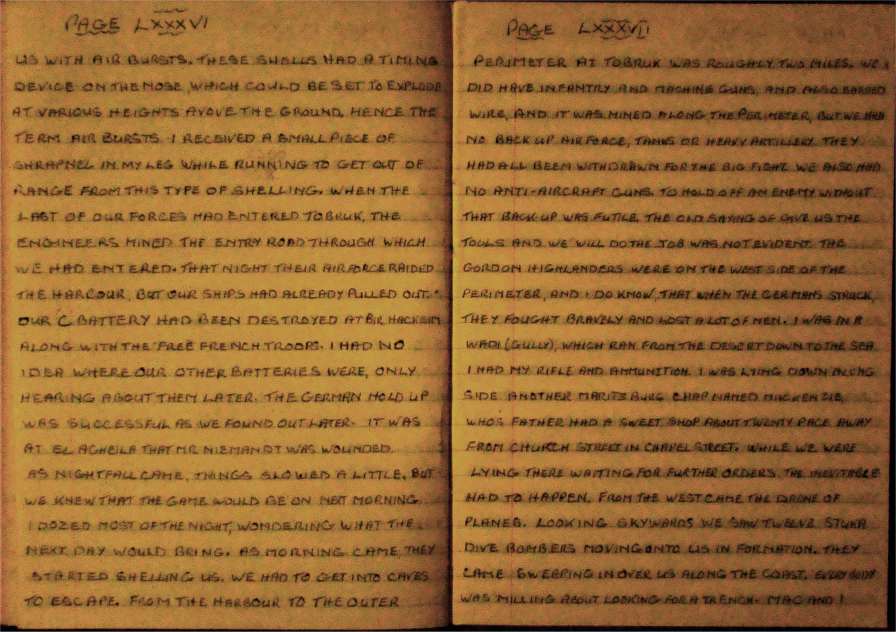 PAGE LXXXVI
US WITH AIR BURSTS. THESE SHELLS HAD A TIMING
DEVICE ON THE NOSE, WHICH COULD BE SET TO EXPLODE
AT VARIOUS HEIGHTS AVOVE THE GROUND. HENCE THE
TERM AIR BURSTS. I RECEIVED A SMALL PIECE OF
SHRAPNEL IN MY LEG WHILE RUNNING TO GET OUT OF
RANGE FROM THIS TYPE OF SHELLING. WHEN THE
LAST OF OUR FORCES HAD ENTERED TOBRUK, THE
ENGINEERS MINED THE ENTRY ROAD THROUGH WHICH
WE HAD ENTERED. THAT NIGHT THEIR AIRFORCE RAIDED
THE HARBOUR, BUT OUR SHIPS HAD ALREADY PULLED OUT.
OUR C BATTERY HAD BEEN DESTROYED AT BIR HACKEIM
ALONG WITH THE FREE FRENCH TROOPS. I HAD NO
IDEA WHERE OUR OTHER BATTERIES WERE, ONLY
HEARING ABOUT THEM LATER. THE GERMAN HOLD UP
WAS SUCCESSFUL AS WE FOUND OUT LATER. IT WAS
AT EL AGHEILA THAT MR NIEMANDT WAS WOUNDED.
AS NIGHTFALL CAME, THINGS SLOWED A LITTLE, BUT
WE KNEW THAT THE GAME WOULD BE ON NEXT MORNING
I DOZED MOST OF THE NIGHT, WONDERING WHAT THE
NEXT DAY WOULD BRING. AS MORNING CAME, THEY
STARTED SHELLING US. WE HAD TO GET INTO CAVES
TO ESCAPE. FROM THE HARBOUR TO THE OUTER
PAGE LXXXVII
PERIMETER AT TOBRUK WAS ROUGHLY TWO MILES. WE
DID HAVE INFANTRY AND MACHINE GUNS, AND ALSO BARBED
WIRE, AND IT WAS MINED ALONG THE PERIMETER, BUT WE HAD
NO BACK UP AIRFORCE, TANKS OR HEAVY ARTILLERY. THEY
HAD ALL BEEN WITHDRAWN FOR THE BIG FIGHT. WE ALSO HAD
NO ANTI-AIRCRAFT GUNS. TO HOLD OFF AN ENEMY WITHOUT
THAT BACK-UP WAS FUTILE. THE OLD SAYING OF GIVE US THE
TOOLS AND WE WILL DO THE JOB WAS NOT EVIDENT. THE
GORDON HIGHLANDERS WERE ON THE WEST SIDE OF THE
PERIMETER, AND I DO KNOW, THAT WHEN THE GERMANS STRUCK,
THEY FOUGHT BRAVELY AND LOST A LOT OF MEN. I WAS IN A
WADI (GULLY), WHICH RAN FROM THE DESERT DOWN TO THE SEA
I HAD MY RIFLE AND AMMUNITION. I WAS LYING DOWN ALONG
SIDE ANOTHER MARITZBURG CHAP NAMED MACKENZIE,
WHO'S FATHER HAD A SWEET SHOP ABOUT TWENTY PACE AWAY
FROM CHURCH STREET IN CHAPEL STREET. WHILE WE WERE
LYING THERE WAITING FOR FURTHER ORDERS. THE INEVITABLE
HAD TO HAPPEN. FROM THE WEST CAME THE DRONE OF
PLANES. LOOKING SKYWARDS WE SAW TWELVE STUKA
DIVE BOMBERS MOVING ONTO US IN FORMATION. THEY
CAME SWEEPING IN OVER US ALONG THE COAST. EVERYBODY
WAS MILLING ABOUT LOOKING FOR A TRENCH. MAC AND I